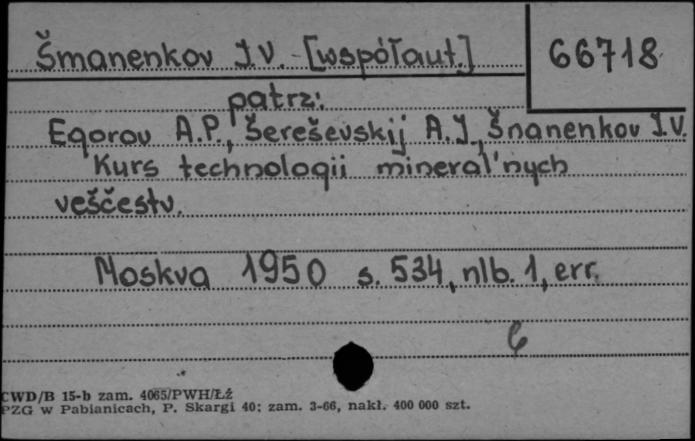 Šmanenkov I.V. - [współaut.]
66718
patrz:
Egorov A.P., Šereševskij A.I., Šnanenkov I.V.
Kurs technologii mineral'nych
veščestv.
Moskva 1950 s. 534, nlb. 1, err.
6
CWD/B 15-b zam. 4065/PWH/Łź
PZG w Pabianicach, P. Skargi 40; zam. 3-66, nakł. 400 000 szt.